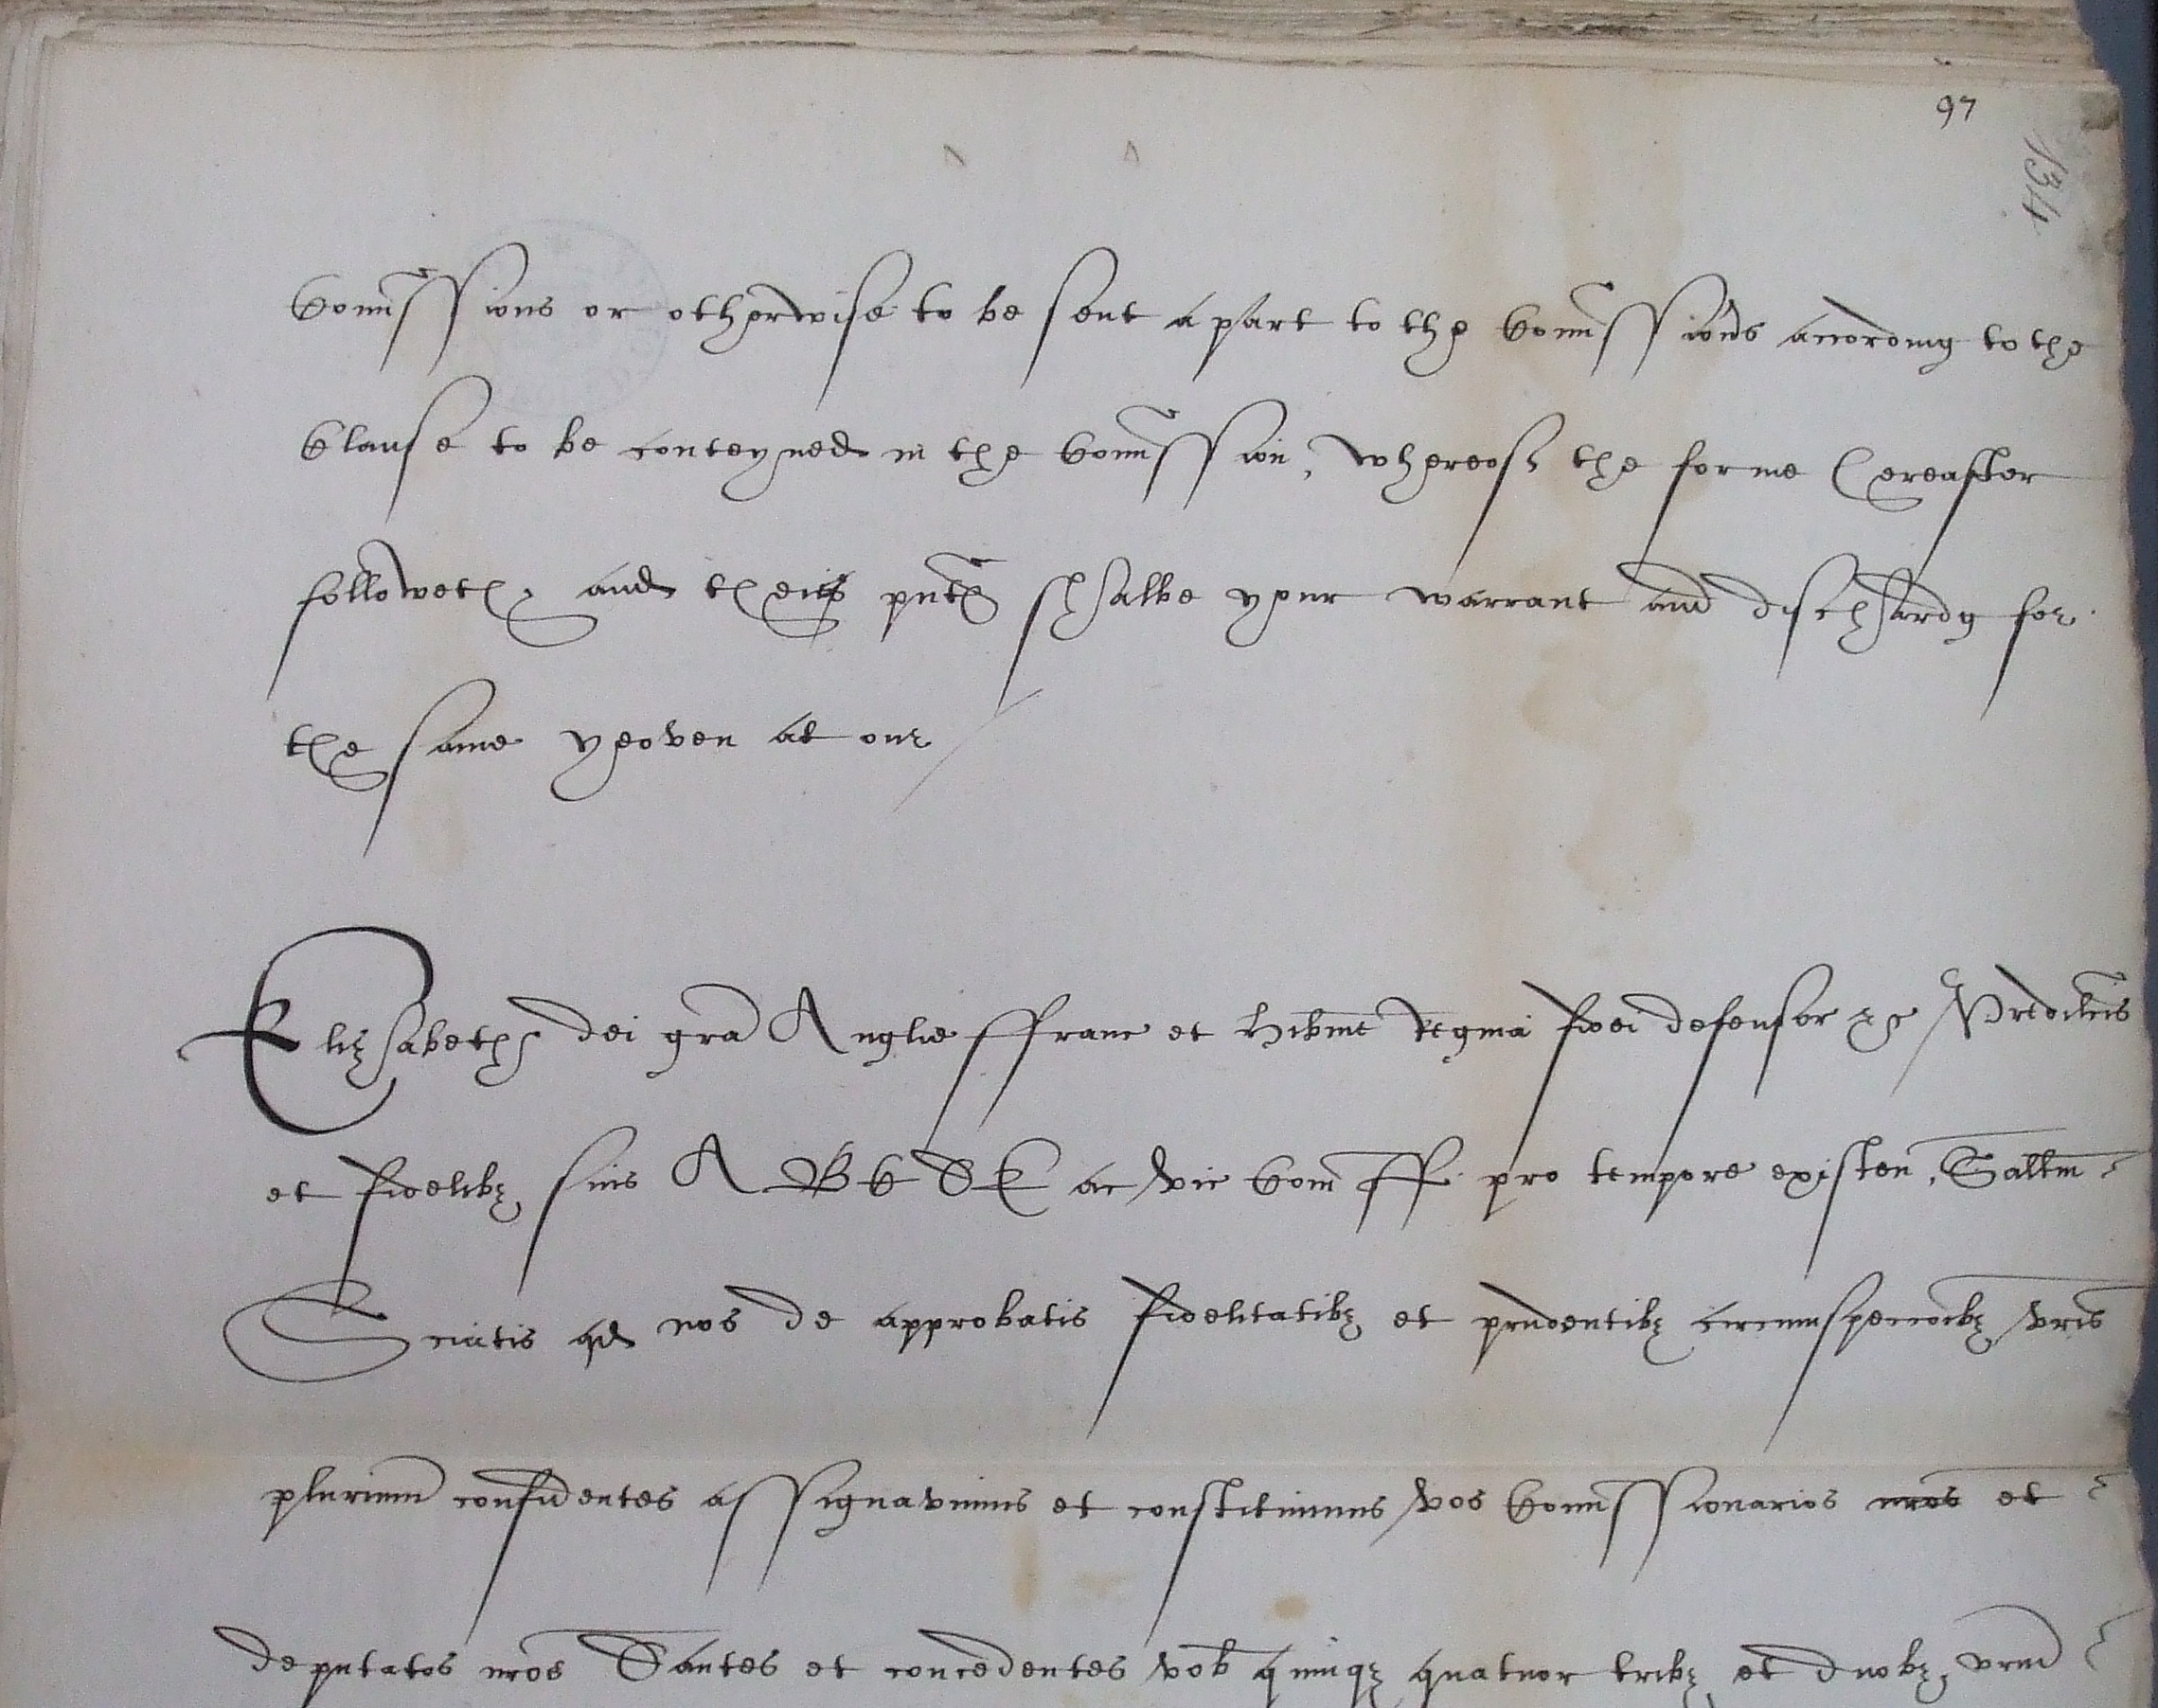 97
134
Com̃issions or otherwise to be sent apart to the Com̃issions according to the
Clause to be conteyned in the Com̃ission, whereof the forme hereafter
followeth, and theis pñts shalbe your warrant and dischardg for
the same yeoven at our
Elizabeth dei gra Anglie ffranc et Hibñie Regina fidei defensor &c Predilc̃is
et fidelibz suis A B C D E ac vic Com ff pro tempore existen, Saltm
Sciatis qd nos de approbatis fidelitatibz et prudentibz circumspeccoibz vris
plurimum confidentes assignavimus et constituimus vos Com̃issionarios nros et
deputatos nros Dantes et concedentes vob quinqz quatuor tribz et duobz vrm